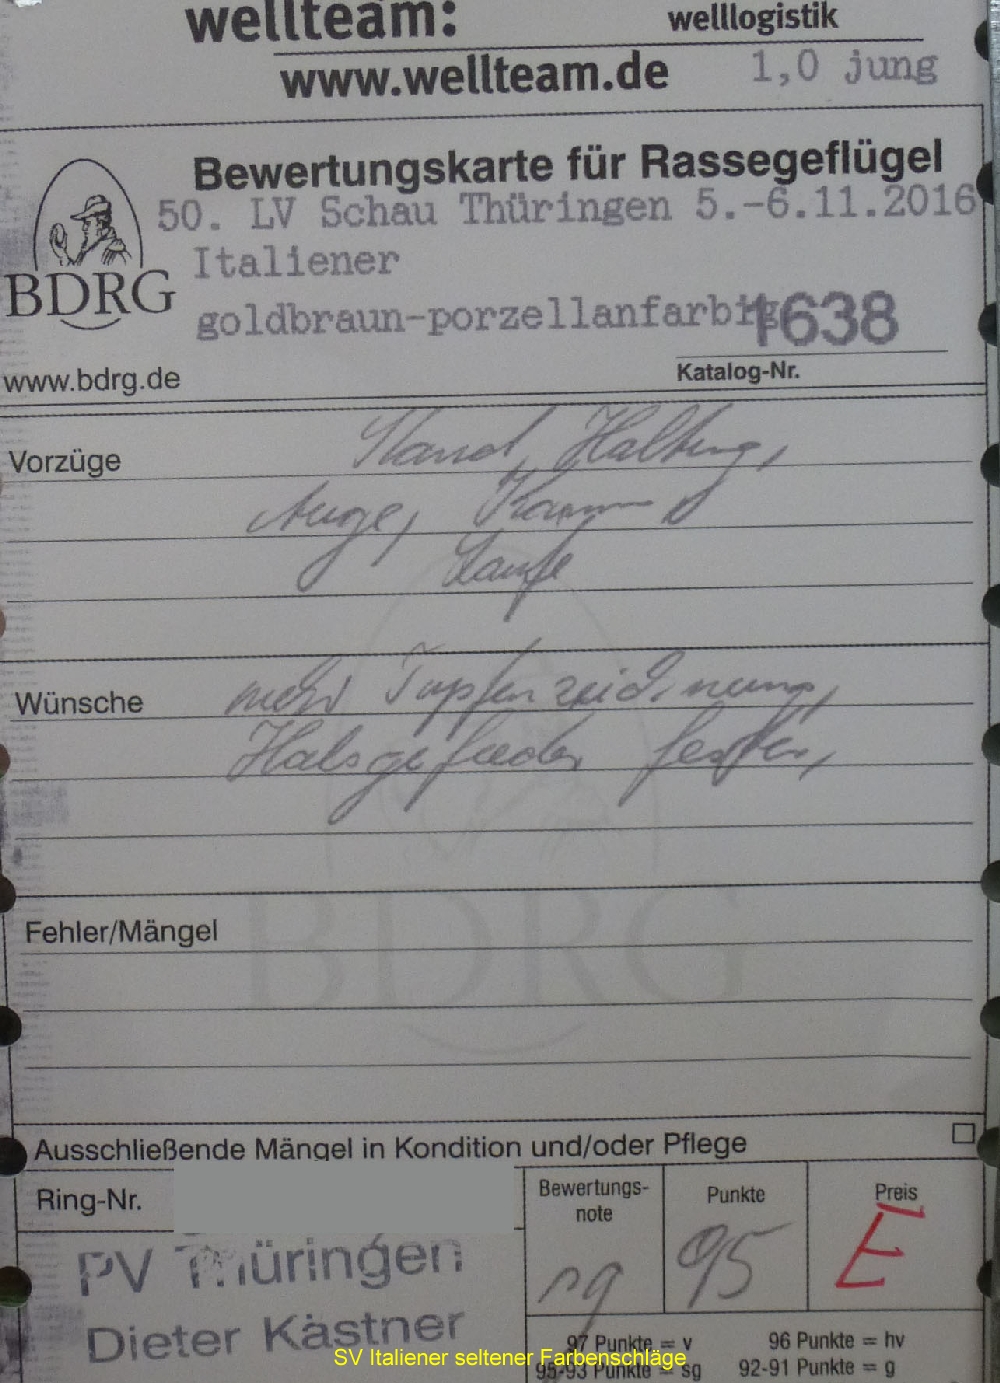 wellteam: welllogistik
www.wellteam.de 1,0 jung
Bewertungskarte für Rassegeflügel
50. LV Schau Thüringen 5.-6.11.2016
Italiener
goldbraun-porzellanfarbig 1638
BDRG
www.bdrg.de Katalog-Nr.
Vorzüge Stand, Haltung,
Auge, Kamm
Läufe
Wünsche mehr Tupfenzeichnung,
Halsgefieder fester,
BDRG
Fehler/Mängel
Ausschließende Mängel in Kondition und/oder Pflege
Ring-Nr. Bewertungs-note Punkte Preis
sg 95 E
PV Thüringen
Dieter Kästner
97 Punkte = v 96 Punkte = hv
95-93 Punkte = sg 92-91 Punkte = g
SV Italiener seltener Farbenschläge